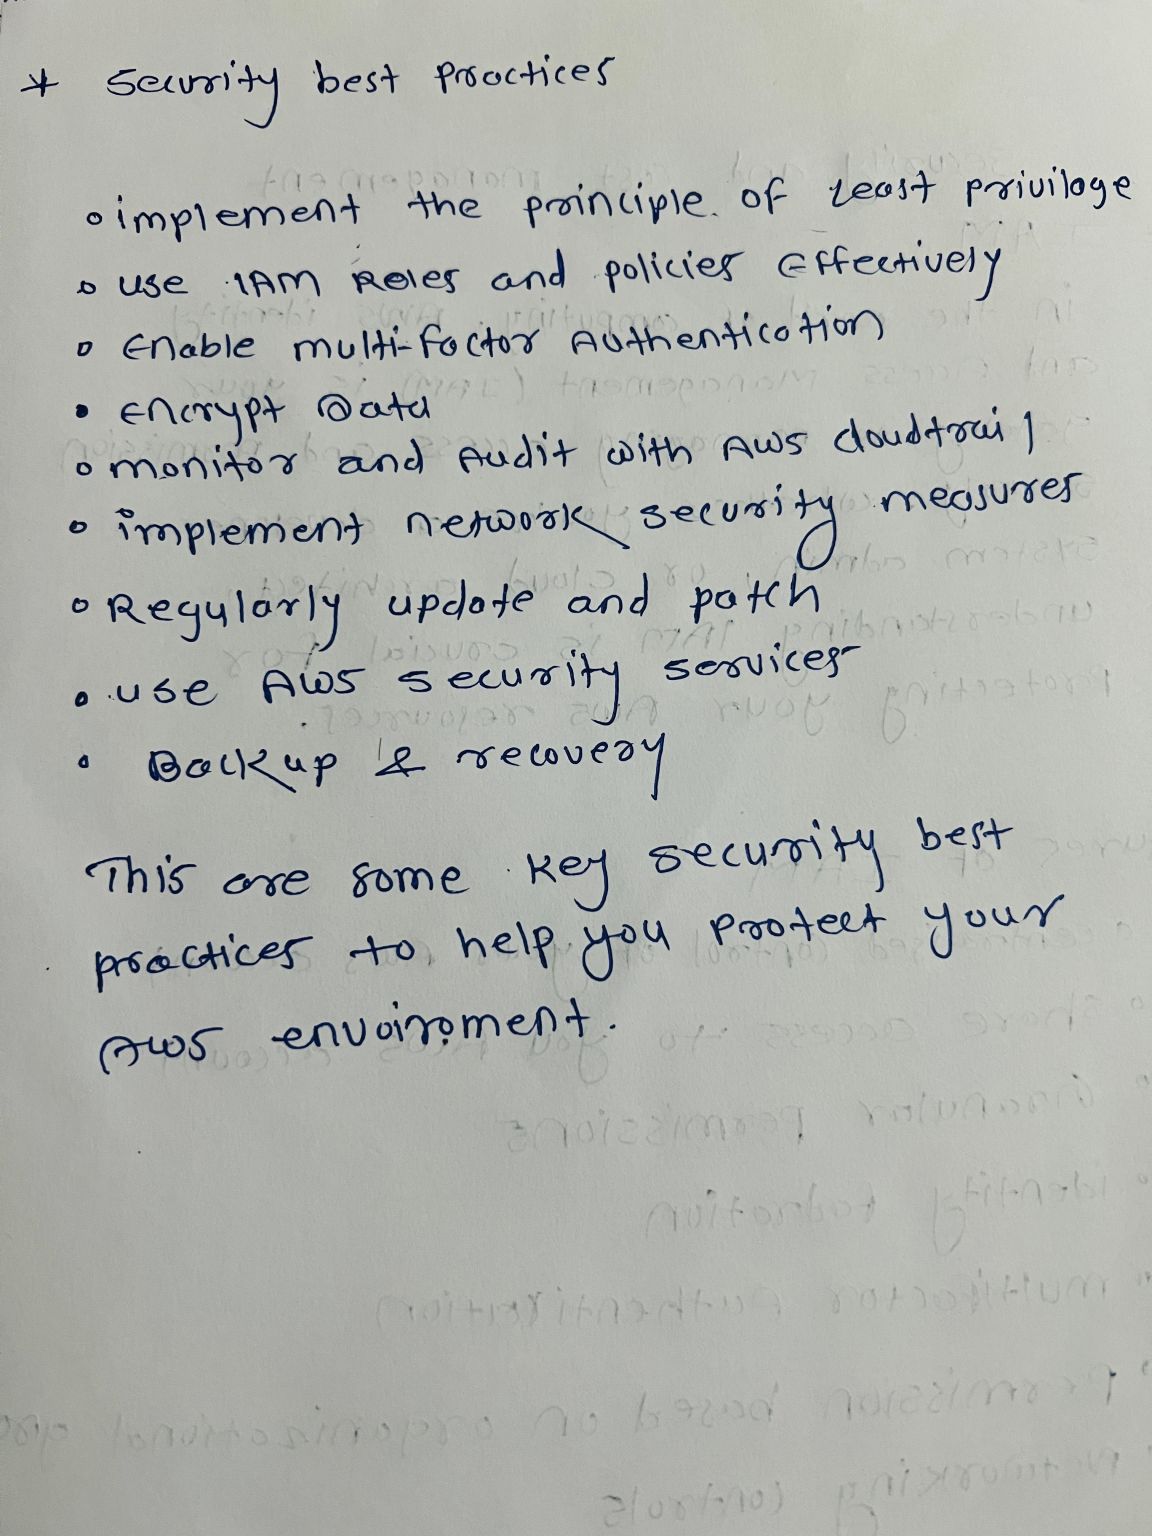 * Security best Practices
o implement the principle of least privilage
o use IAM Roles and policies Effectively
o Enable multi-factor Authentication
• Encrypt Data
o monitor and Audit with AWS cloudtrail
o implement network security measures
o Regularly update and patch
o use AWS security services
o Backup & recovery
This are some key security best
practices to help you protect your
AWS envoiroment.